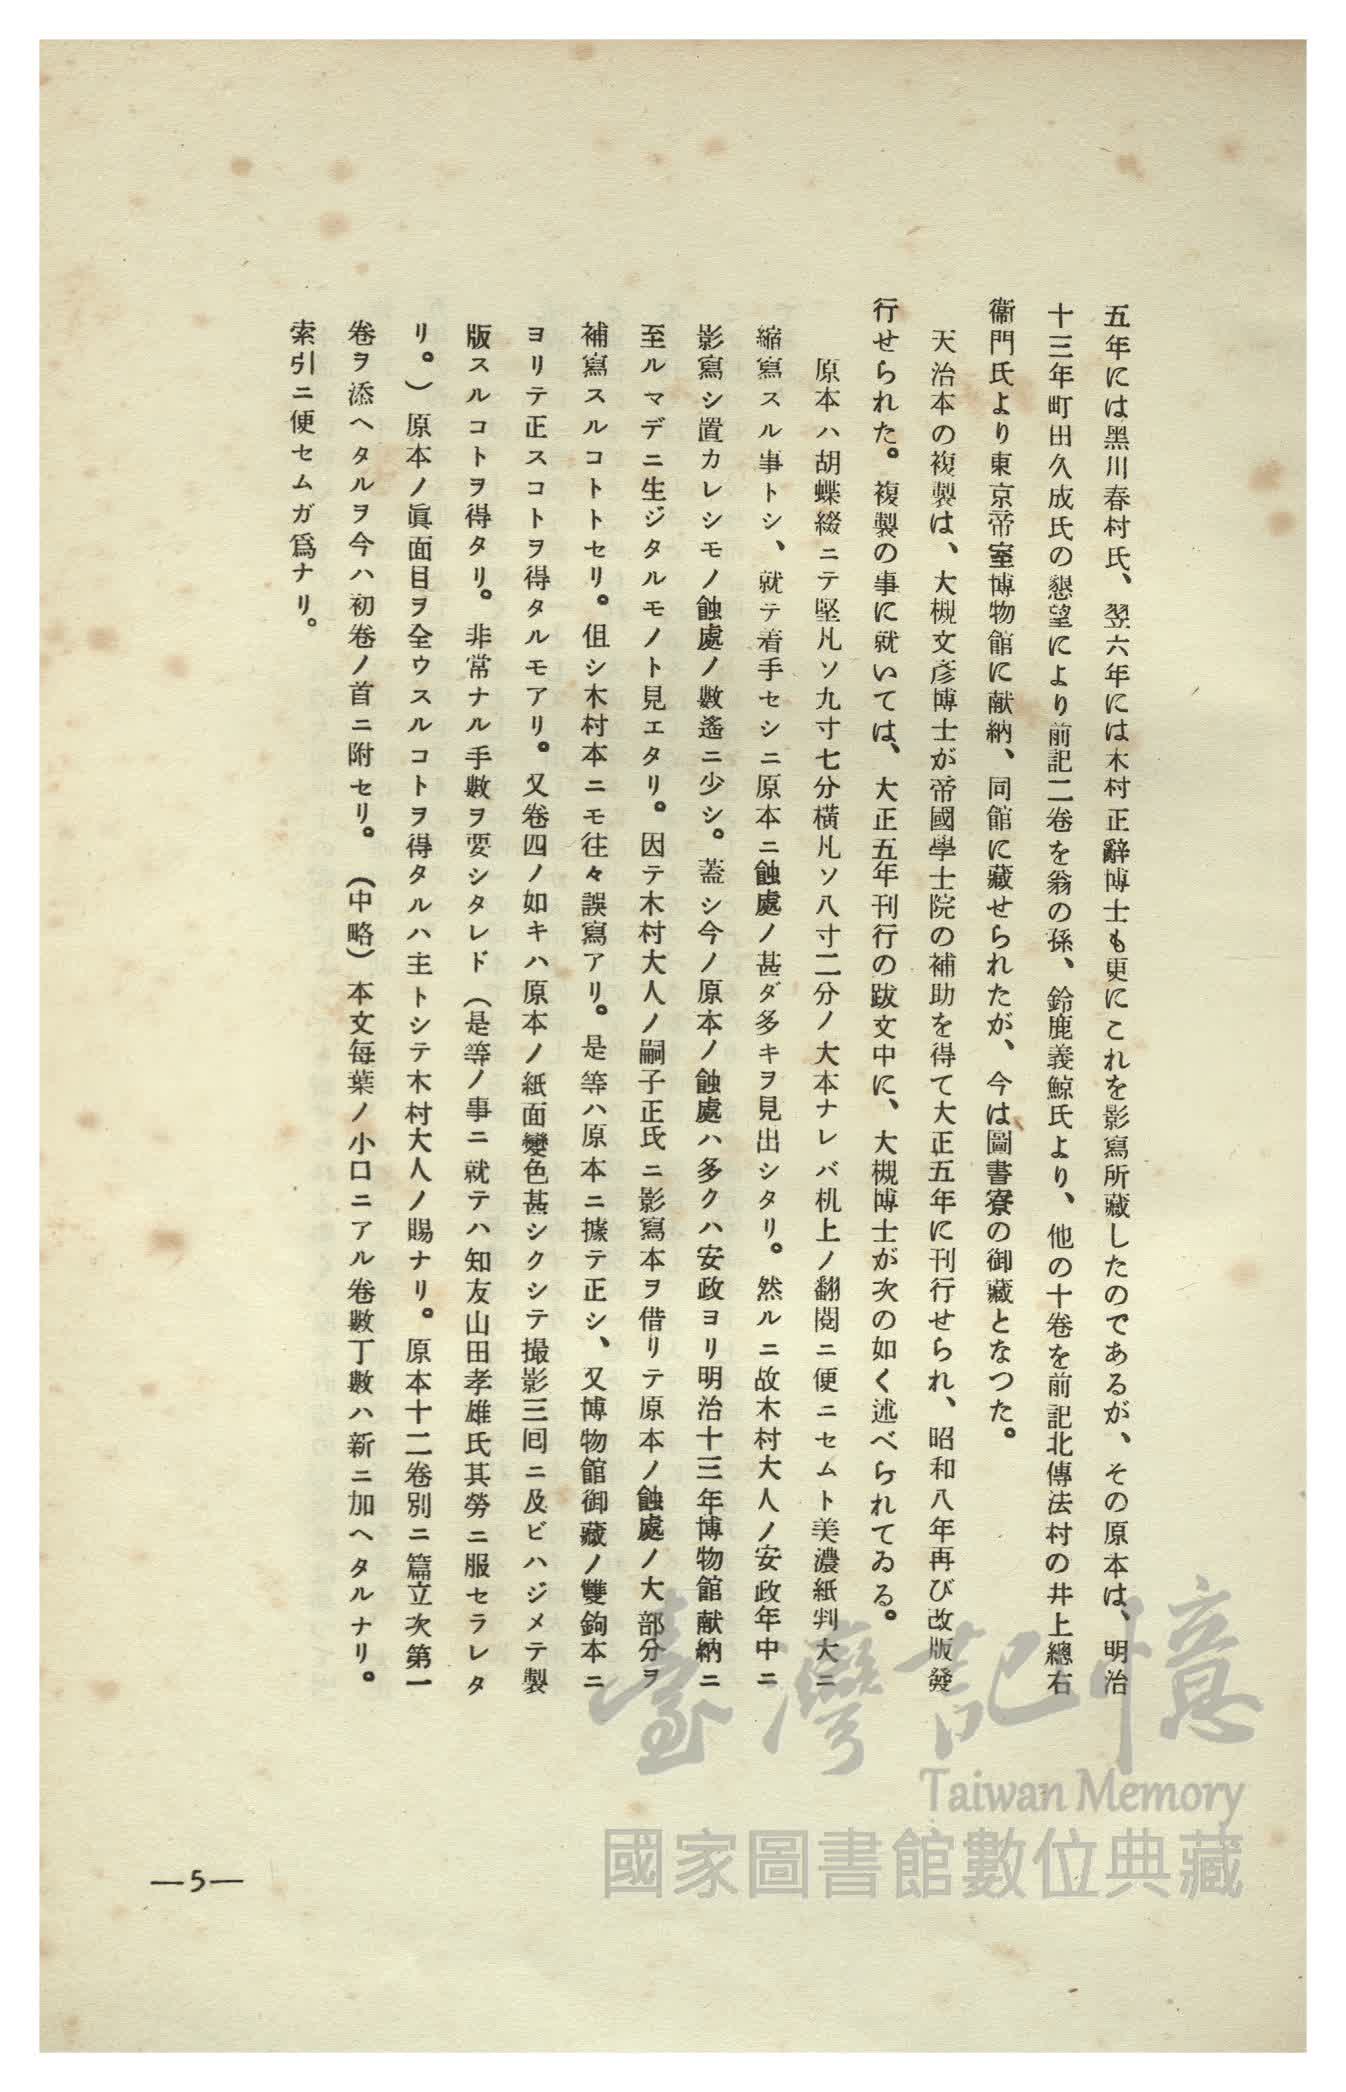 五年には黑川春村氏、翌六年には木村正辭博士も更にこれを影寫所藏したのであるが、その原本は、明治
十三年町田久成氏の懇望により前記二卷を翁の孫、鈴鹿義鯨氏より、他の十卷を前記北傳法村の井上總右
衞門氏より東京帝室博物館に献納、同館に藏せられたが、今は圖書寮の御藏となつた。
天治本の複製は、大槻文彥博士が帝國學士院の補助を得て大正五年に刊行せられ、昭和八年再び改版發
行せられた。複製の事に就いては、大正五年刊行の跋文中に、大槻博士が次の如く述べられてゐる。
原本ハ胡蝶綴ニテ竪凡ソ九寸七分橫凡ソ八寸二分ノ大本ナレバ机上ノ翻閱ニ便ニセムト美濃紙判大ニ
縮寫スル事トシ、就テ着手セシニ原本ニ蝕處ノ甚ダ多キヲ見出シタリ。然ルニ故木村大人ノ安政年中ニ
影寫シ置カレシモノ蝕處ノ數遙ニ少シ。蓋シ今ノ原本ノ蝕處ハ多クハ安政ヨリ明治十三年博物館献納ニ
至ルマデニ生ジタルモノト見エタリ。因テ木村大人ノ嗣子正氏ニ影寫本ヲ借リテ原本ノ蝕處ノ大部分ヲ
補寫スルコトトセリ。伹シ木村本ニモ往々誤寫アリ。是等ハ原本ニ據テ正シ、又博物館御藏ノ雙鉤本ニ
ヨリテ正スコトヲ得タルモアリ。又卷四ノ如キハ原本ノ紙面變色甚シクシテ撮影三囘ニ及ビハジメテ製
版スルコトヲ得タリ。非常ナル手數ヲ要シタレド（是等ノ事ニ就テハ知友山田孝雄氏其勞ニ服セラレタ
リ。）原本ノ眞面目ヲ全ウスルコトヲ得タルハ主トシテ木村大人ノ賜ナリ。原本十二卷別ニ篇立次第一
卷ヲ添ヘタルヲ今ハ初卷ノ首ニ附セリ。（中略）本文每葉ノ小口ニアル卷數丁數ハ新ニ加ヘタルナリ。
索引ニ便セムガ爲ナリ。
—5—
臺灣記憶
Taiwan Memory
國家圖書館數位典藏